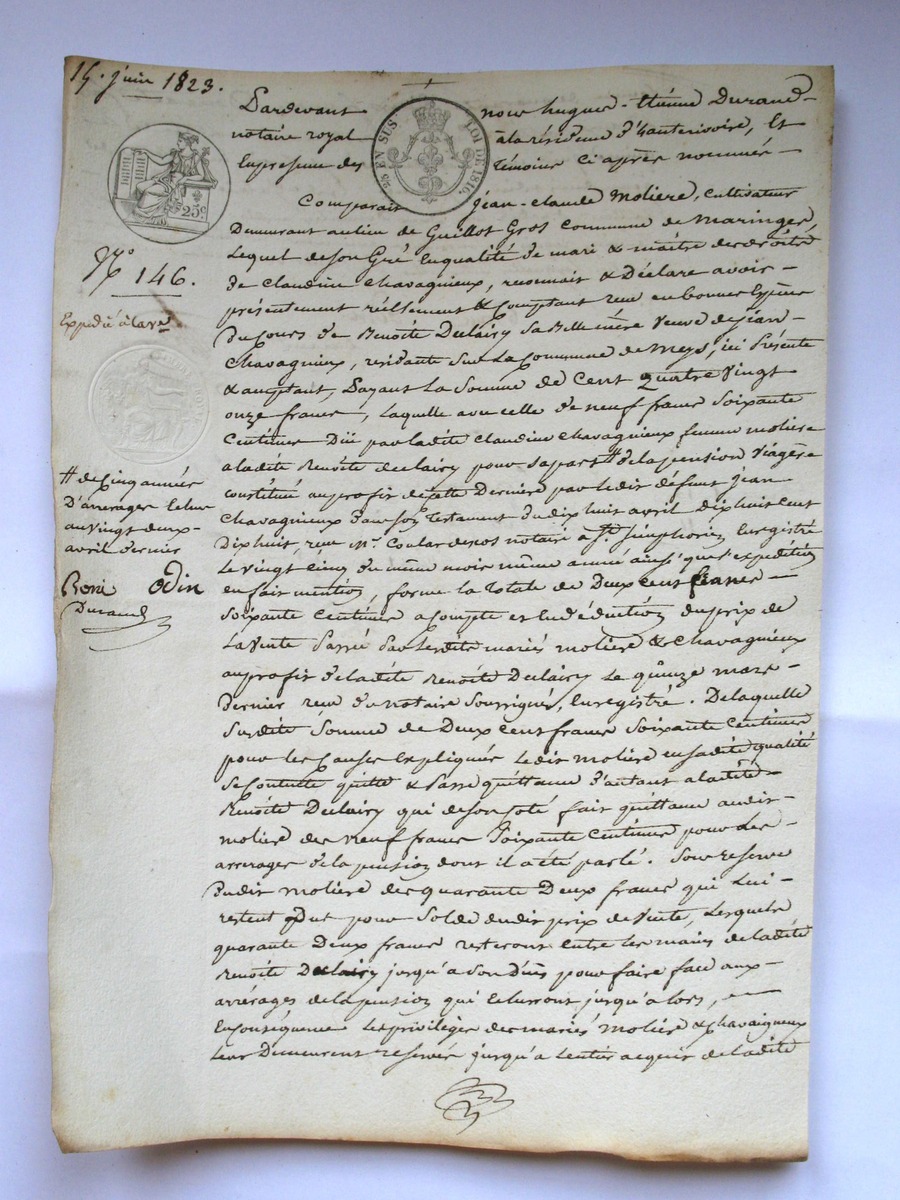 15. juin 1823.
Pardevant nous hugues-Etienne Durand
notaire royal à la résidence d'
En presence des témoins ci après nommés
25 EN SUS LOI DE 1816.
25c
Comparait jean-claude Moliere, cultivateur
Demeurant au lieu de Guillot Gros Commune de Maringes,
Lequel de son Gré En qualité de mari & maitre des droits
de Claudine Chavagnieux, reconnait & Déclare avoir
présentement réellement & Comptant reçu en bonnes Espèces
Du Cours de Benoîte Duclairy sa Belle mère Veuve de jean
Chavagnieux, residante Sur La Commune de Meys, ici Présente
& acceptant, Payant La Somme de Cent quatre Vingt
onze francs, Laquelle avec celle de neuf francs Soixante
Centimes Dûe par ladite Claudine Chavagnieux femme moliere
a ladite Benoîte Duclairy pour sa part # de la pension Viagère
constituée au profit de cette Derniere par ledit défunt jean
Chavagnieux dans son Testament du dix huit avril Dix huit cent
Dix huit, reçu Me. notaire à St. Simphorien Enregistré
Le vingt cinq du même mois même année ainsi que l'expedition
en fait mention, forme la Totale de Deux Cent francs
Soixante Centimes a Compte et En déduction du prix de
La Vente Passée Par lesdits mariés moliere & Chavagnieux
au profit de ladite Benoîte Duclairy Le quinze mars
Dernier reçu du notaire Soussigné, Enregistré. De laquelle
Susdite Somme de Deux Cent francs Soixante Centimes
pour les Causes Expliquées Ledit Moliere en sadite qualité
Se Contente quitte & Passe quittance d'autant a ladite
Benoîte Duclairy qui de son coté fait quittance audit
moliere des Neuf francs Soixante Centimes pour les
arrerages de la pension dont il a été parlé. Sous reserve
dudit moliere des quarante Deux francs qui lui
restent Dus pour Solde dudit prix de Vente, Lesquels
quarante Deux francs resteront entre les mains de ladite
Benoîte Duclairy jusqu'a son Décès pour faire face aux
arrérages de la pension qui Echerront jusqu'a lors,
En Conséquence Les privilèges des mariés Moliere & Chavaigneux
Leur Demeurent reservés jusqu'a L'entier acquit de ladite
No. 146.
Expédié à la
# de Cinq années
D'arrerages Echus
au Vingt deux
avril dernier
Odin
Durand